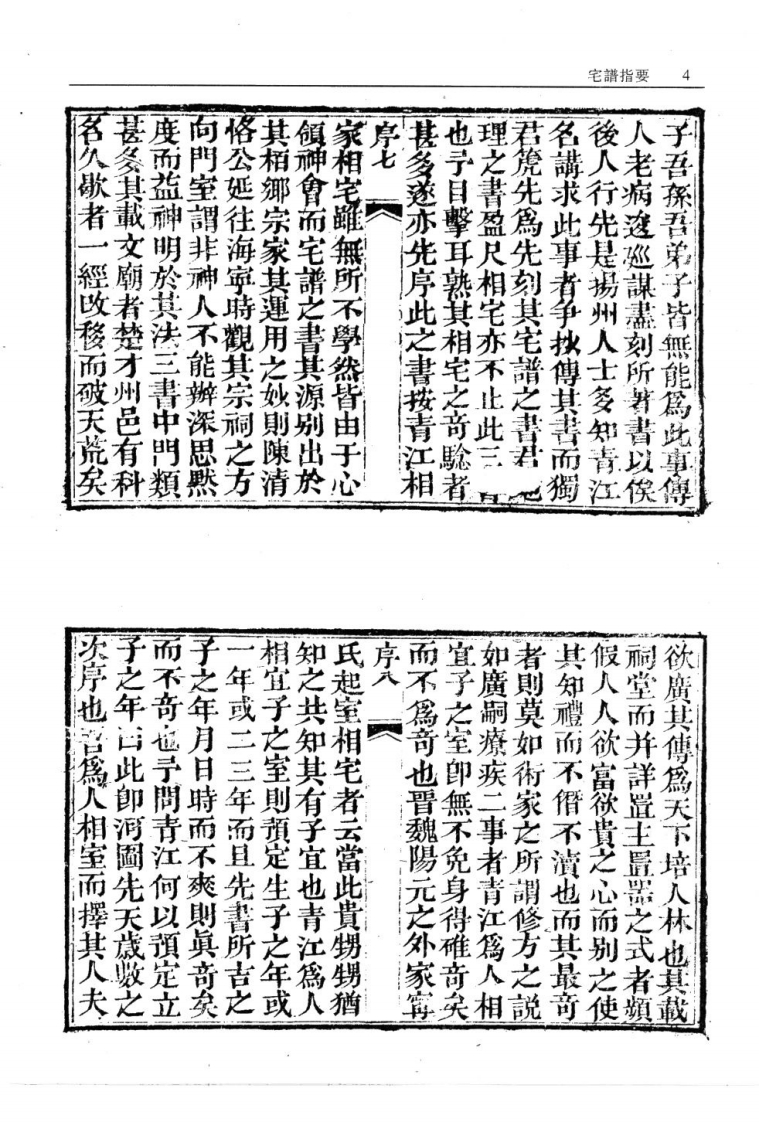 宅譜指要 4
子吾孫吾弟子皆無能爲此事傳
人老病逡廵謀盡刻所著書以俟
後人行先是揚州人士多知青江
名講求此事者争抄傳其書而獨
君篼先爲先刻其宅譜之書君
理之書盈尺相宅亦不止此三
也予目擊耳熟其相宅之竒騐者
甚多遂亦先序此之書按青江相
序七
家相宅雖無所不學然皆由于心
領神會而宅譜之書其源别出於
其栢鄉宗家其運用之妙則陳清
恪公延往海寧時觀其宗祠之方
向門室謂非神人不能辦深思黙
度而益神明於其法三書中門類
甚多其載文廟者楚才州邑有科
名久歇者一經改移而破天荒矣
欲廣其傳爲天下培人林也其載
祠堂而并詳置主置器之式者頻
假人人欲富欲貴之心而别之使
其知禮而不僭不瀆也而其最竒
者則莫如術家之所謂修方之説
如廣嗣療疾二事者青江爲人相
宜子之室卽無不免身得確竒矣
而不爲竒也晋魏陽元之外家寗
序八
氏起室相宅者云當此貴甥甥猶
知之共知其有子宜也青江爲人
相宜子之室則預定生子之年或
一年或二三年而且先書所吉之
子之年月日時而不爽則眞竒矣
而不竒也予問青江何以預定立
子之年曰此卽河圖先天歲數之
次序也吾爲人相室而擇其人夫